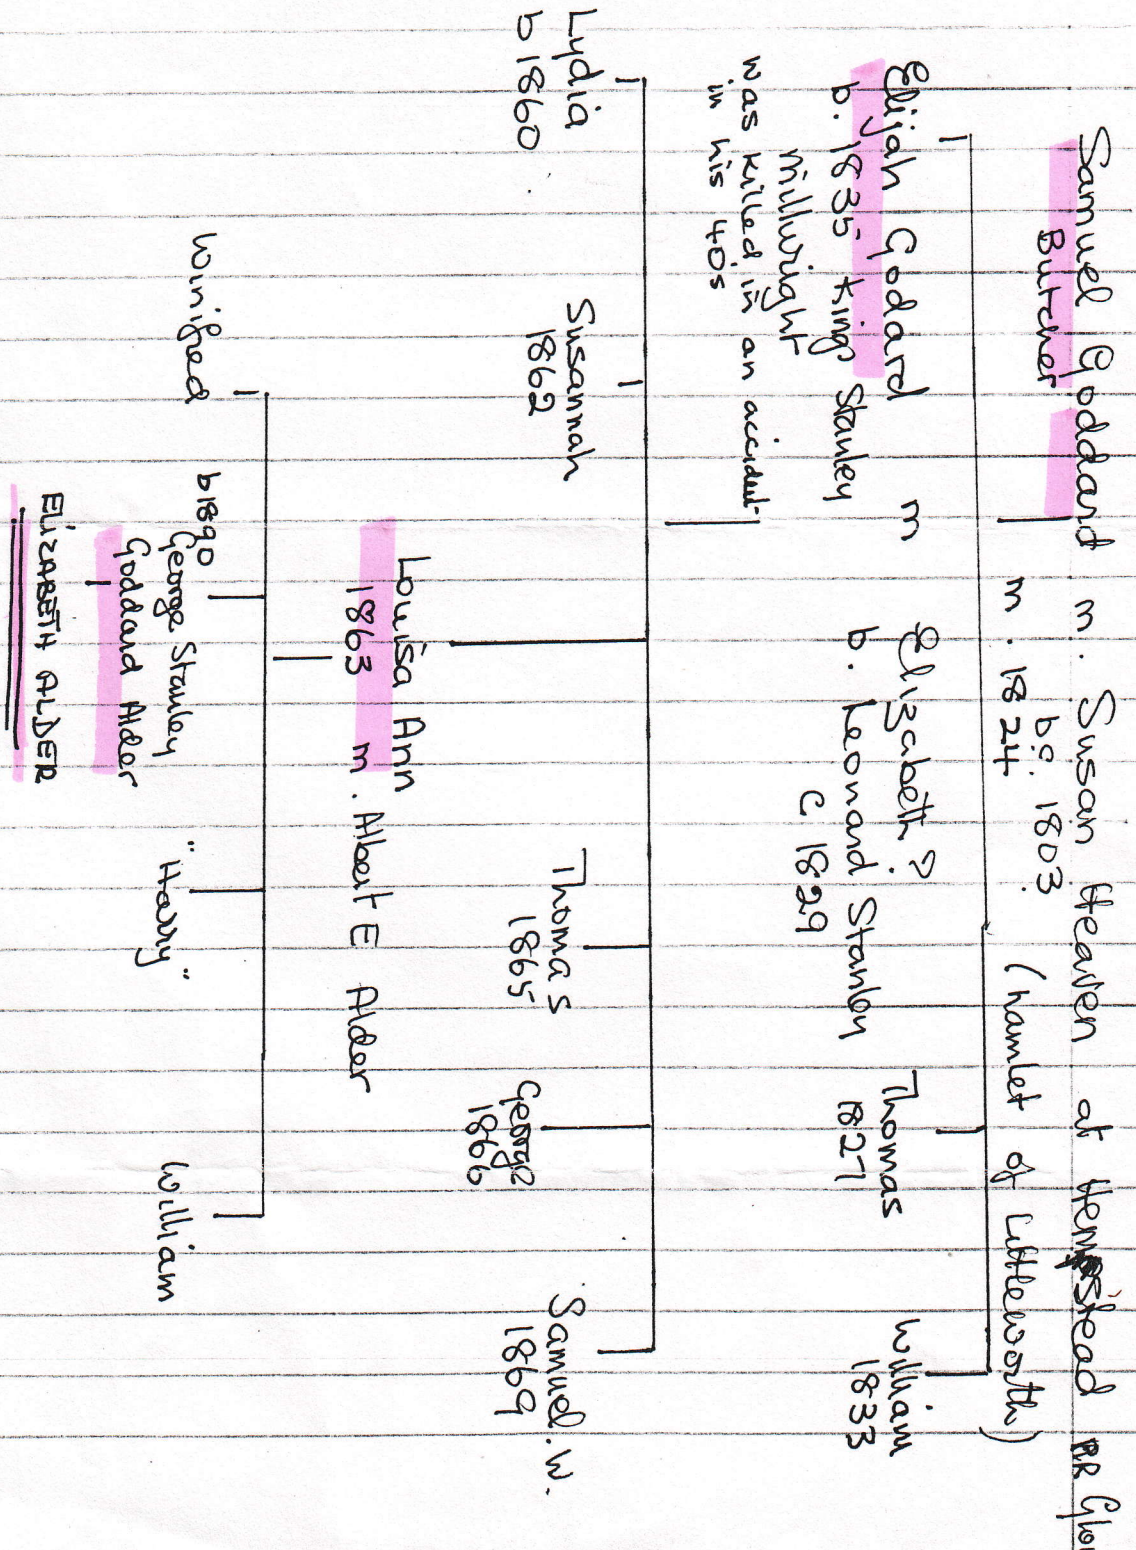 Samuel Goddard m. Susan Heaven at Hempstead nr Glou
Butcher
b c. 1803.
m. 1824
(hamlet of Littleworth)
Elijah Goddard m Elizabeth ?
b. 1835 King Stanley
b. Leonard Stanley
c 1829
Millwright
was killed in an accident
in his 40s
Thomas
1827
William
1833
Lydia
b 1860
Susannah
1862
Louisa Ann
1863 m. Albert E Alder
Thomas
1865
George
1866
Samuel. W.
1869
Winifred
b 1890
George Stanley
Goddard Alder
"Harry"
William
ELIZABETH ALDER